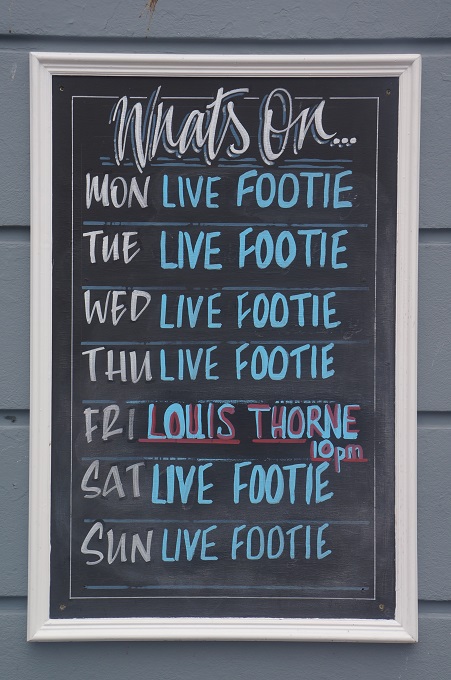 Whats On...
MON LIVE FOOTIE
TUE LIVE FOOTIE
WED LIVE FOOTIE
THU LIVE FOOTIE
FRI LOUIS THORNE
10pm
SAT LIVE FOOTIE
SUN LIVE FOOTIE